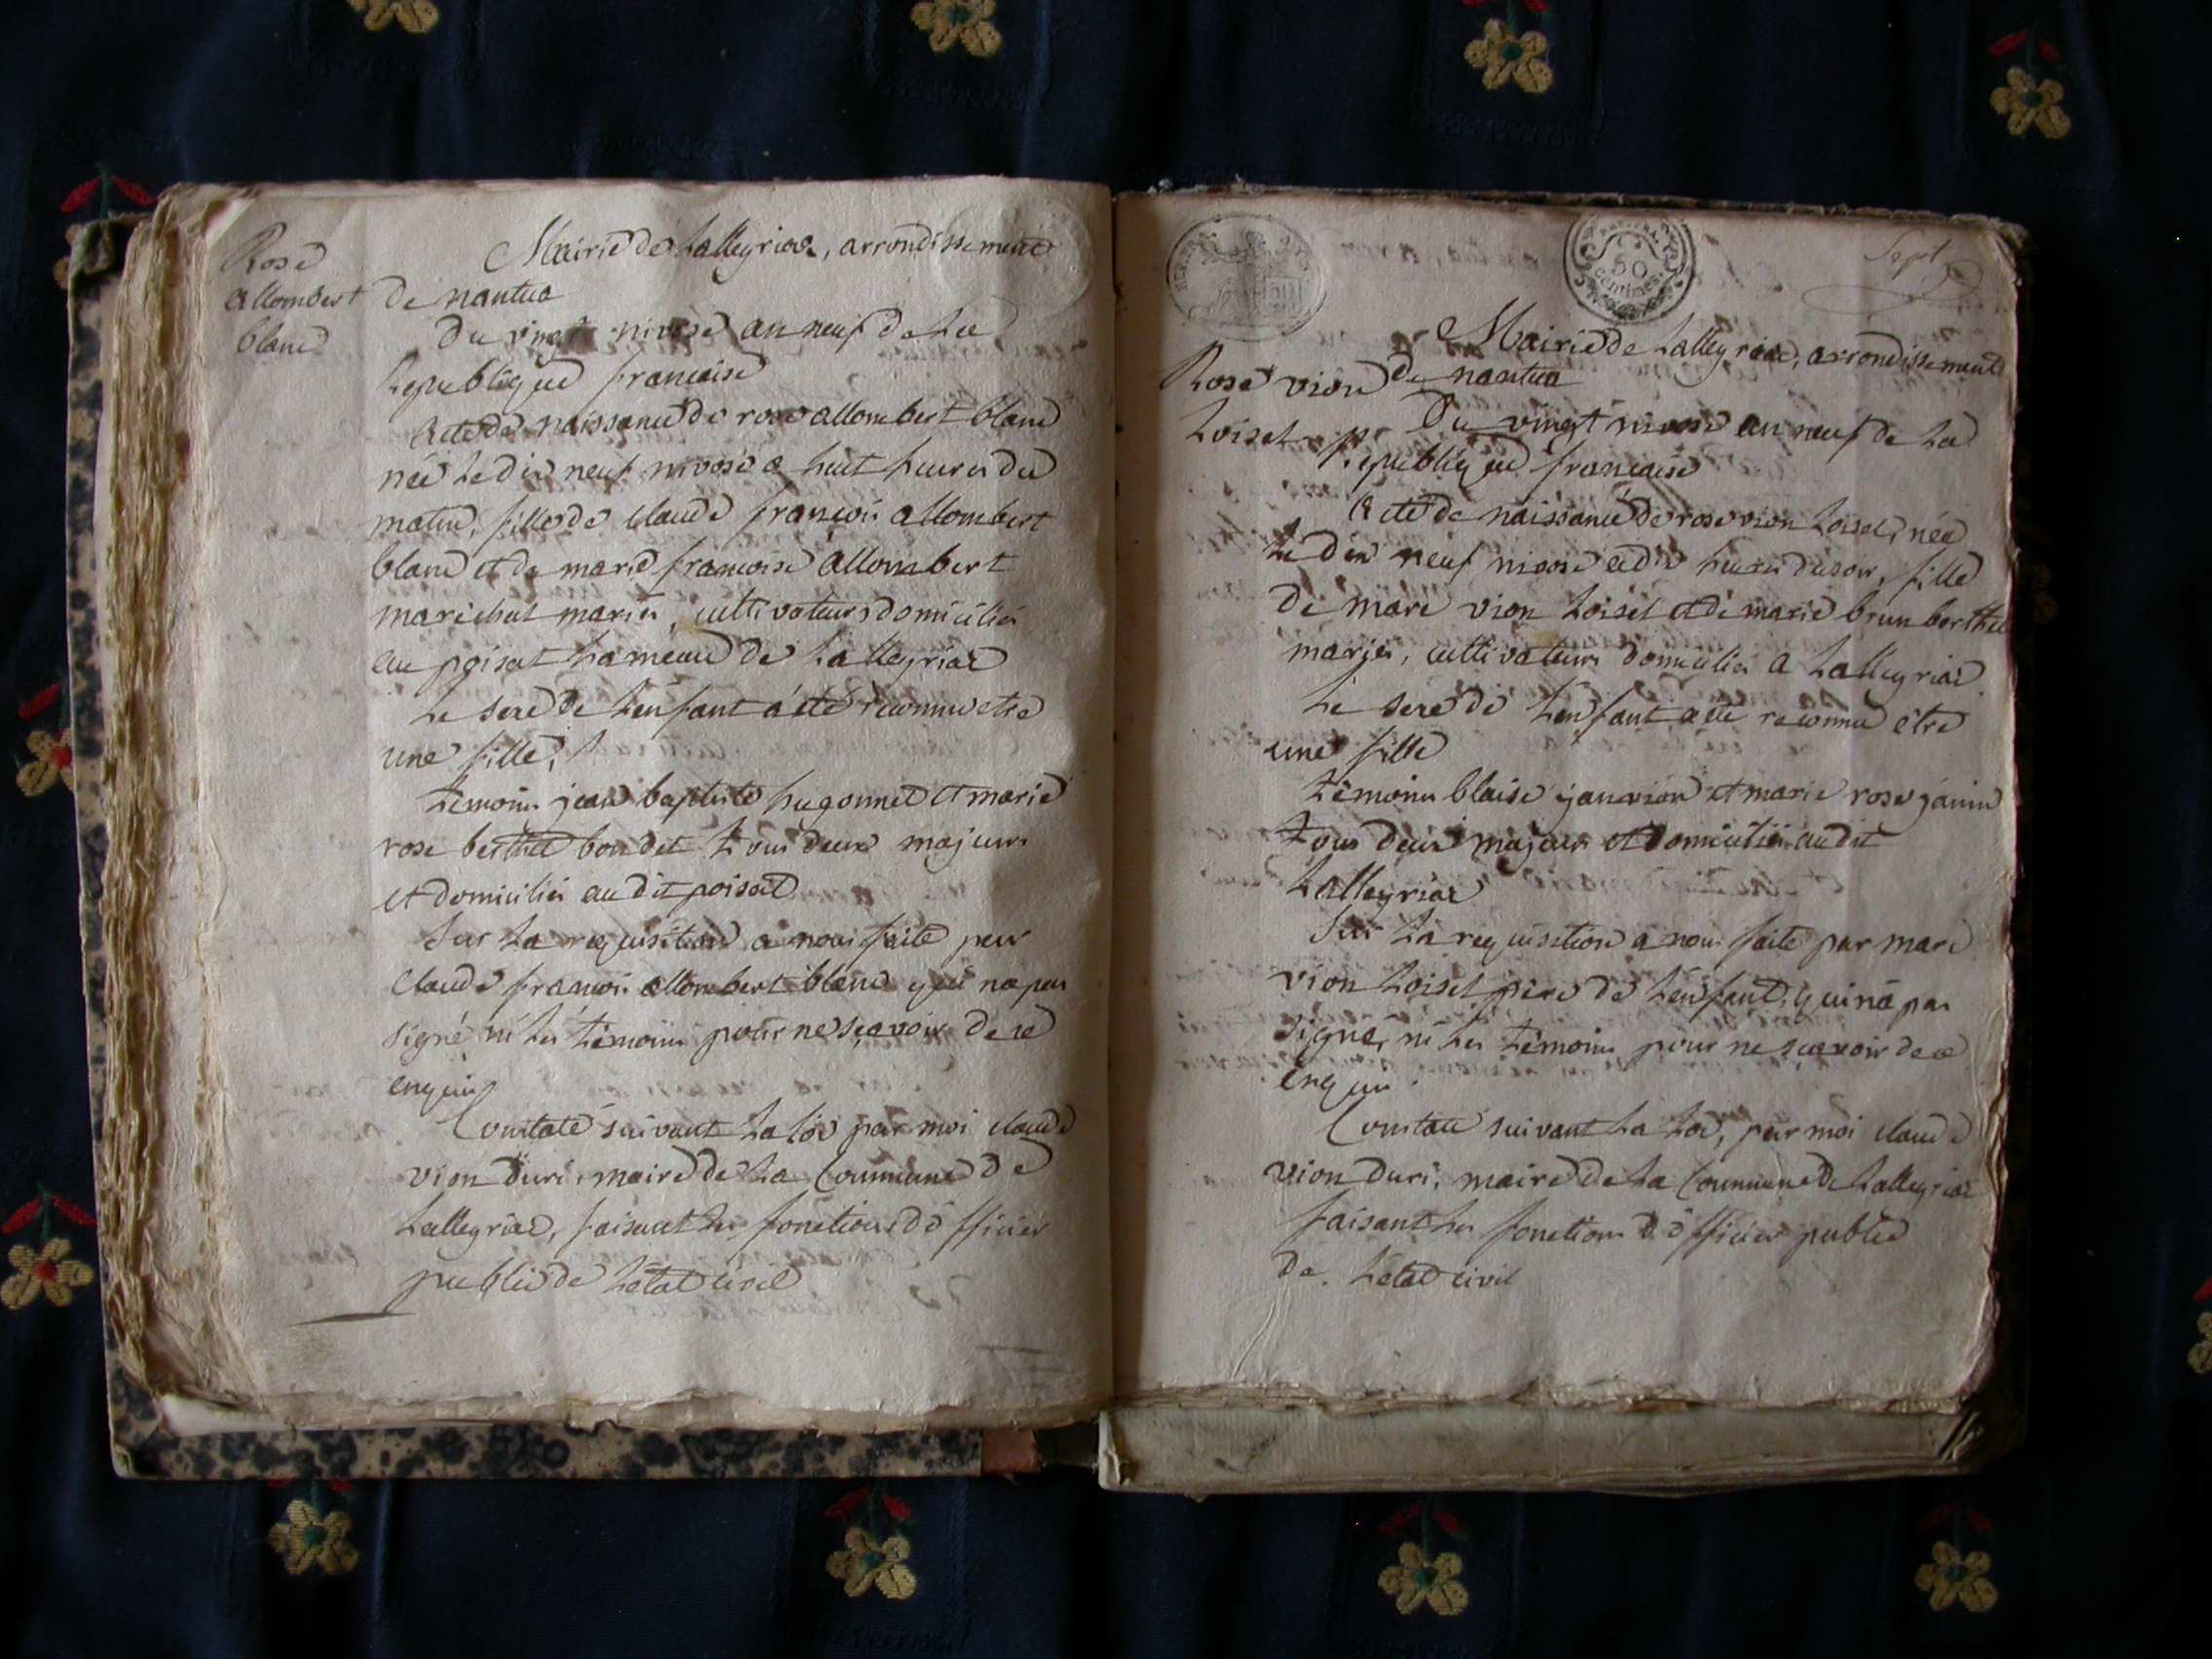 Rose
allombert
blanc
Mairie de Lalleyriac, arrondissement
de nantua
du vingt nivose an neuf de La
Republique francaise
acte de naissance de rose allombert blanc
née Le dix neuf nivose a huit heures du
matin, fille de claude françois allombert
blanc et de marie francoise allombert
marechal mariés, cultivateurs domiciliés
au poisat hameau de Lalleyriac
Le sexe de Lenfant a été reconnu etre
une fille,
Témoins jean baptiste hugonnet et marie
rose berthet bondet Tous deux majeurs
et domiciliés au dit poisat
Sur La requisition a nous faite par
claude françois allombert blanc qui na pas
signé ni Les Témoins pour ne sçavoir de ce
enquis
Constaté suivant La Loi par moi claude
vion duri, maire de La Commune de
Lalleyriac, faisant Les fonctions dofficier
public de Létat civil
50
centimes
Sept
Mairie de Lalleyriac, arrondissement
de nantua
Rose vion
Loiset
Du vingt nivose an neuf de La
Republique francaise
Acte de naissance de rose vion Loiset, née
Le dix neuf nivose a dix heures du soir, fille
de marc vion Loiset et de marie brun berthet
mariés, cultivateurs domiciliés a Lalleyriac
Le sexe de Lenfant a été reconnu etre
une fille
Témoins blaise janvion et marie rose janin
Tous deux majeurs et domiciliés au dit
Lalleyriac
Sur La requisition a nous faite par marc
vion Loiset pere de Lenfant, qui na pas
signé, ni Les Témoins pour ne sçavoir de ce
enquis
Constaté suivant La Loi, par moi claude
vion duri, maire de La Commune de Lalleyriac
faisant Les fonctions dofficier public
de Létat civil